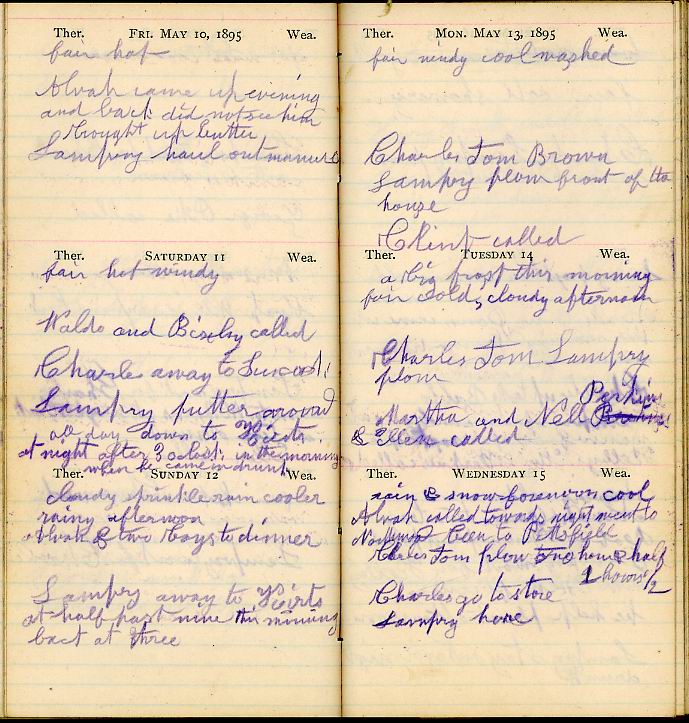 Ther. FRI. MAY 10, 1895 Wea.
fair hot
Alvah came up evening
and back did not see him
Brought up butter
Lampry haul out manure
Ther. SATURDAY 11 Wea.
fair hot windy
Waldo and called
Charles away to
Lampry putter around
all day down to
at night after 3 oclock in the morning
when he came in drunk
Ther. SUNDAY 12 Wea.
cloudy sprinkle rain cooler
rainy afternoon
Alvah & two boys to dinner
Lampry away to
at half past nine this morning
back at three
Ther. MON. MAY 13, 1895 Wea.
fair windy cool washed
Charles Tom Brown
Lampry plow front of the
house
Clint called
Ther. TUESDAY 14 Wea.
a big frost this morning
fair cold, cloudy afternoon
Charles Tom Lampry
plow
Perkins
Martha and Nell
& Ellen called
Ther. WEDNESDAY 15 Wea.
rain & snow forenoon cool
Alvah called towards night went to
been to Pittsfield
Charles Tom plow hour & half
1 hours 1/2
Charles go to store
Lampry here